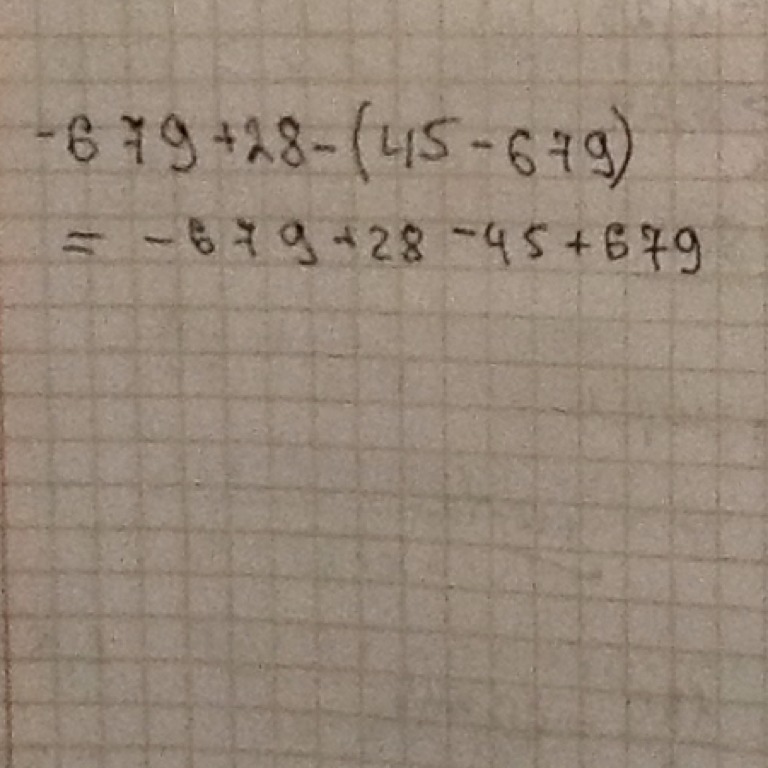 -679+28-(45-679)
= -679+28-45+679